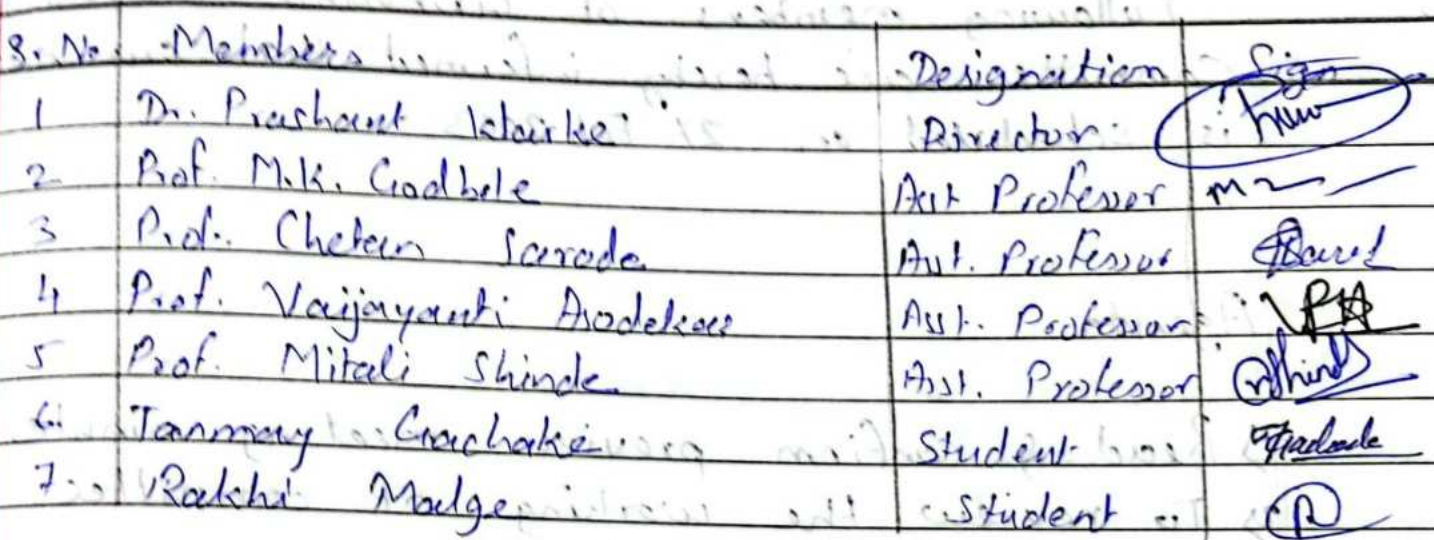 S. No. Members Designation Sign
1 Dr. Prashant Khairke Director
2 Prof. M.K. Godbole Asst Professor
3 Prof. Chetan Sarode Asst. Professor
4 Prof. Vaijayanti Asodekar Asst. Professor
5 Prof. Mitali Shinde Asst. Professor
6. Tanmay Gachake Student
7. Rakhi Madge Student